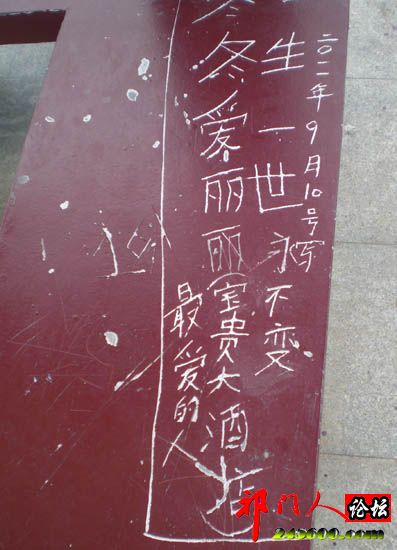 二〇一一年9月10号写
生一世永不变
冬冬爱丽丽宝贵大酒店
最爱的人
祁门人论坛
245600.com